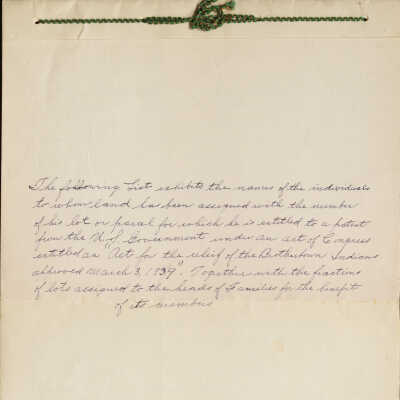 The following List exhibits the names of the individuals
to whom land has been assigned with the number
of his lot or parcel for which he is entitled to a patent
from the U.S. Government under an act of Congress
entitled an "Act for the relief of the Brothertown Indians
approved March 3, 1839". Together with the fractions
of lots assigned to the heads of Families for the benefit
of its members